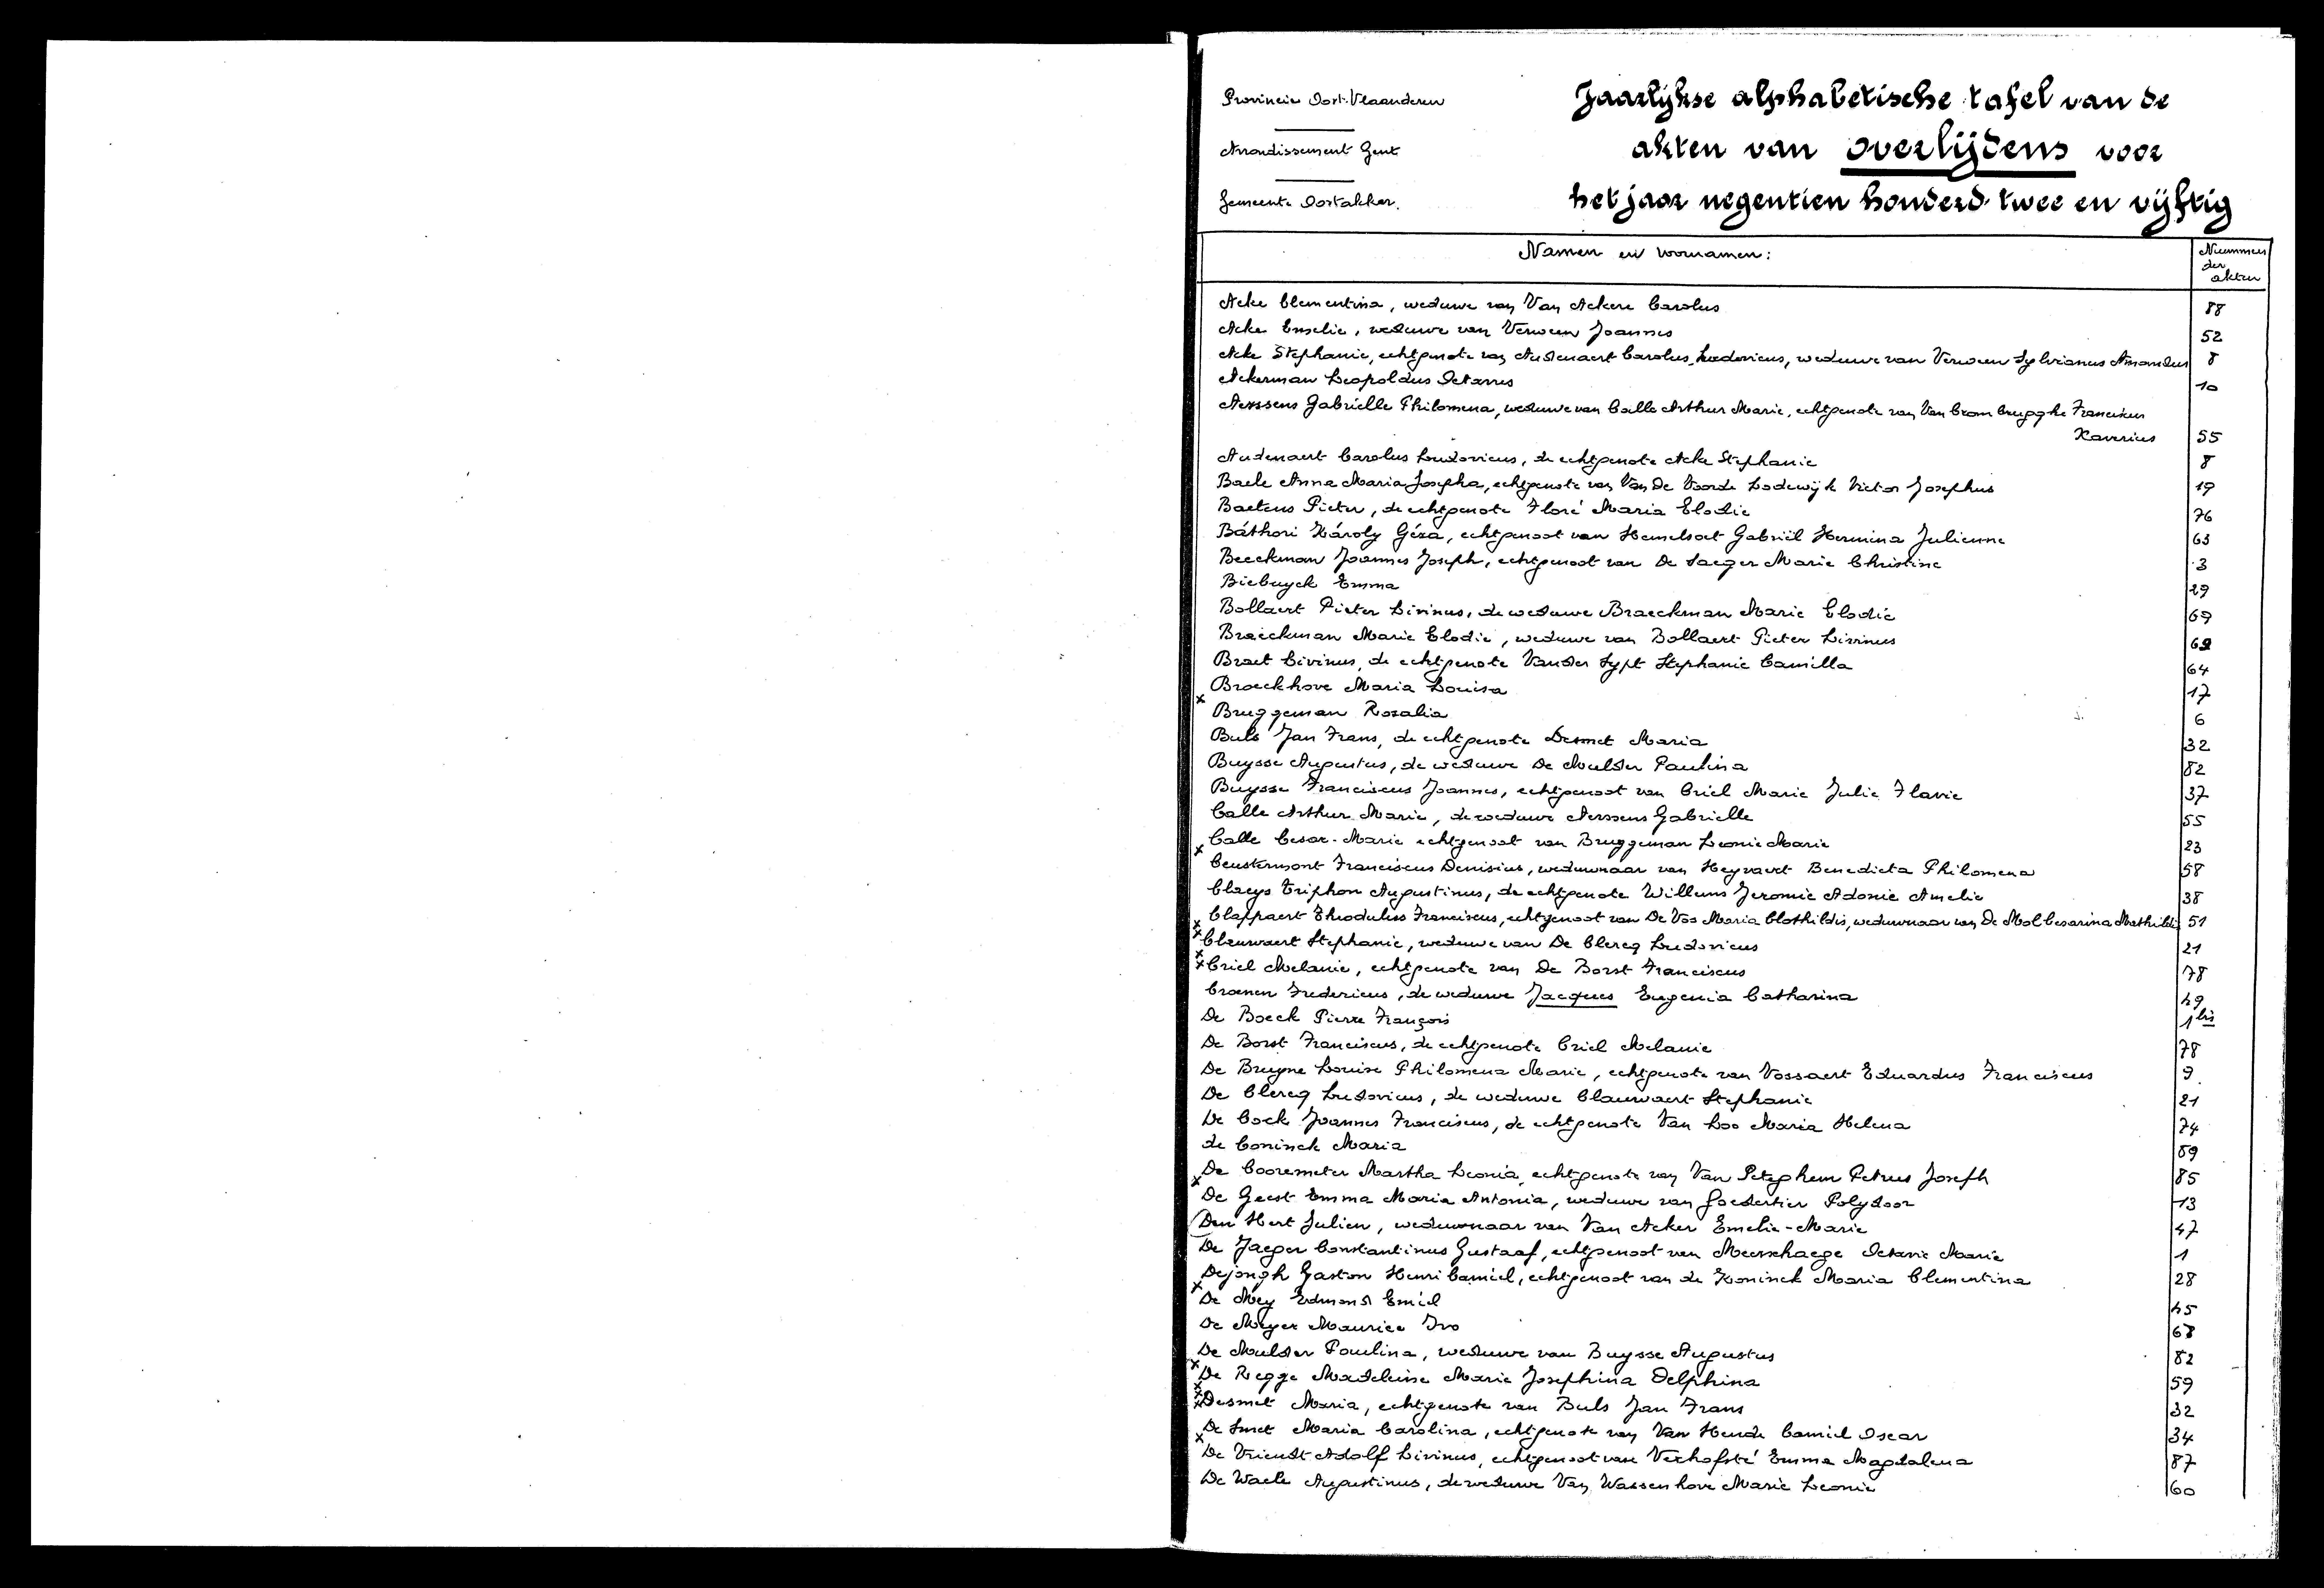 Provincie Oost-Vlaanderen
Arrondissement Gent
Gemeente Oostakker.
Jaarlijkse alphabetische tafel van de
akten van overlijdens voor
het jaar negentien honderd twee en vijftig
Namen en voornamen:
Nummers
der
akten
Acke Clementina, weduwe van Van Ackere Carolus 88
Acke Emelie, weduwe van Verween Joannes 52
Acke Stephanie, echtgenote van Audenaert Carolus Ludovicus, weduwe van Verween Sylvianus Amandus 8
Ackerman Leopoldus Octavus 10
Aerssens Gabriëlle Philomena, weduwe van Calle Arthur Marie, echtgenote van Van Crombrugghe Franciscus
Xaverius 55
Audenaert Carolus Ludovicus, de echtgenote Acke Stephanie 8
Baele Anna Maria Josepha, echtgenote van Van De Voorde Lodewijk Victor Josephus 19
Baetens Pieter, de echtgenote Floré Maria Elodie 76
Báthori Károly Géza, echtgenoot van Hemelsoet Gabriël Hermina Julienne 63
Beeckman Joannes Joseph, echtgenoot van De Saeger Marie Christine 3
Biebuyck Emma 29
Bollaert Pieter Livinus, de weduwe Braeckman Marie Elodie 69
Braeckman Marie Elodie, weduwe van Bollaert Pieter Livinus 69
Braet Livinus, de echtgenote Vander Sypt Stephanie Camilla 64
Broeckhove Maria Louisa 17
x Bruggeman Rozalia 6
Buls Jan Frans, de echtgenote Desmet Maria 32
Buysse Augustus, de weduwe De Mulder Paulina 82
Buysse Franciscus Joannes, echtgenoot van Criel Marie Julie Flavie 37
Calle Arthur Marie, de weduwe Aerssens Gabrielle 55
Calle Cesar-Marie echtgenoot van Bruggeman Leonie Marie 23
x Ceustermont Franciscus Denisius, weduwnaar van Heyvaert Benedicta Philomena 58
Claeys Triphon Augustinus, de echtgenote Willems Jeromie Adonie Amelie 38
Clappaert Theodulus Franciscus, echtgenoot van De Vos Maria Clothildis, weduwnaar van De Mol Cesarina Mathildis 51
x Clauwaert Stephanie, weduwe van De Clercq Ludovicus 21
x Criel Melanie, echtgenote van De Borst Franciscus 78
Croenen Fredericus, de weduwe Jacques Eugenia Catharina 49
De Boeck Pierre François 1 bis
De Borst Franciscus, de echtgenote Criel Melanie 78
De Bruyne Louise Philomena Marie, echtgenote van Vossaert Eduardus Franciscus 9
De Clercq Ludovicus, de weduwe Clauwaert Stephanie 21
De Cock Joannes Franciscus, de echtgenote Van Loo Maria Helena 74
de Coninck Maria 89
De Cooremeter Martha Leonia, echtgenote van Van Peteghem Petrus Joseph 85
x De Geest Emma Maria Antonia, weduwe van Goedertier Polydoor 13
Den Hert Julien, weduwnaar van Van Acker Emelie-Marie 47
De Jaeger Constantinus Gustaaf, echtgenoot van Meerschaege Octavie Marie 1
Dejongh Gaston Henri Camiel, echtgenoot van de Koninck Maria Clementina 28
x De Mey Edmond Emiel 45
De Meyer Maurice Ivo 68
De Mulder Paulina, weduwe van Buysse Augustus 82
x De Regge Madeleine Marie Josephina Delphina 59
x Desmet Maria, echtgenote van Buls Jan Frans 32
De Smet Maria Carolina, echtgenote van Van Hende Camiel Oscar 34
x De Vriendt Adolf Livinus, echtgenoot van Verhofsté Emma Magdalena 87
De Waele Augustinus, de weduwe Van Wassenhove Marie Leonie 60